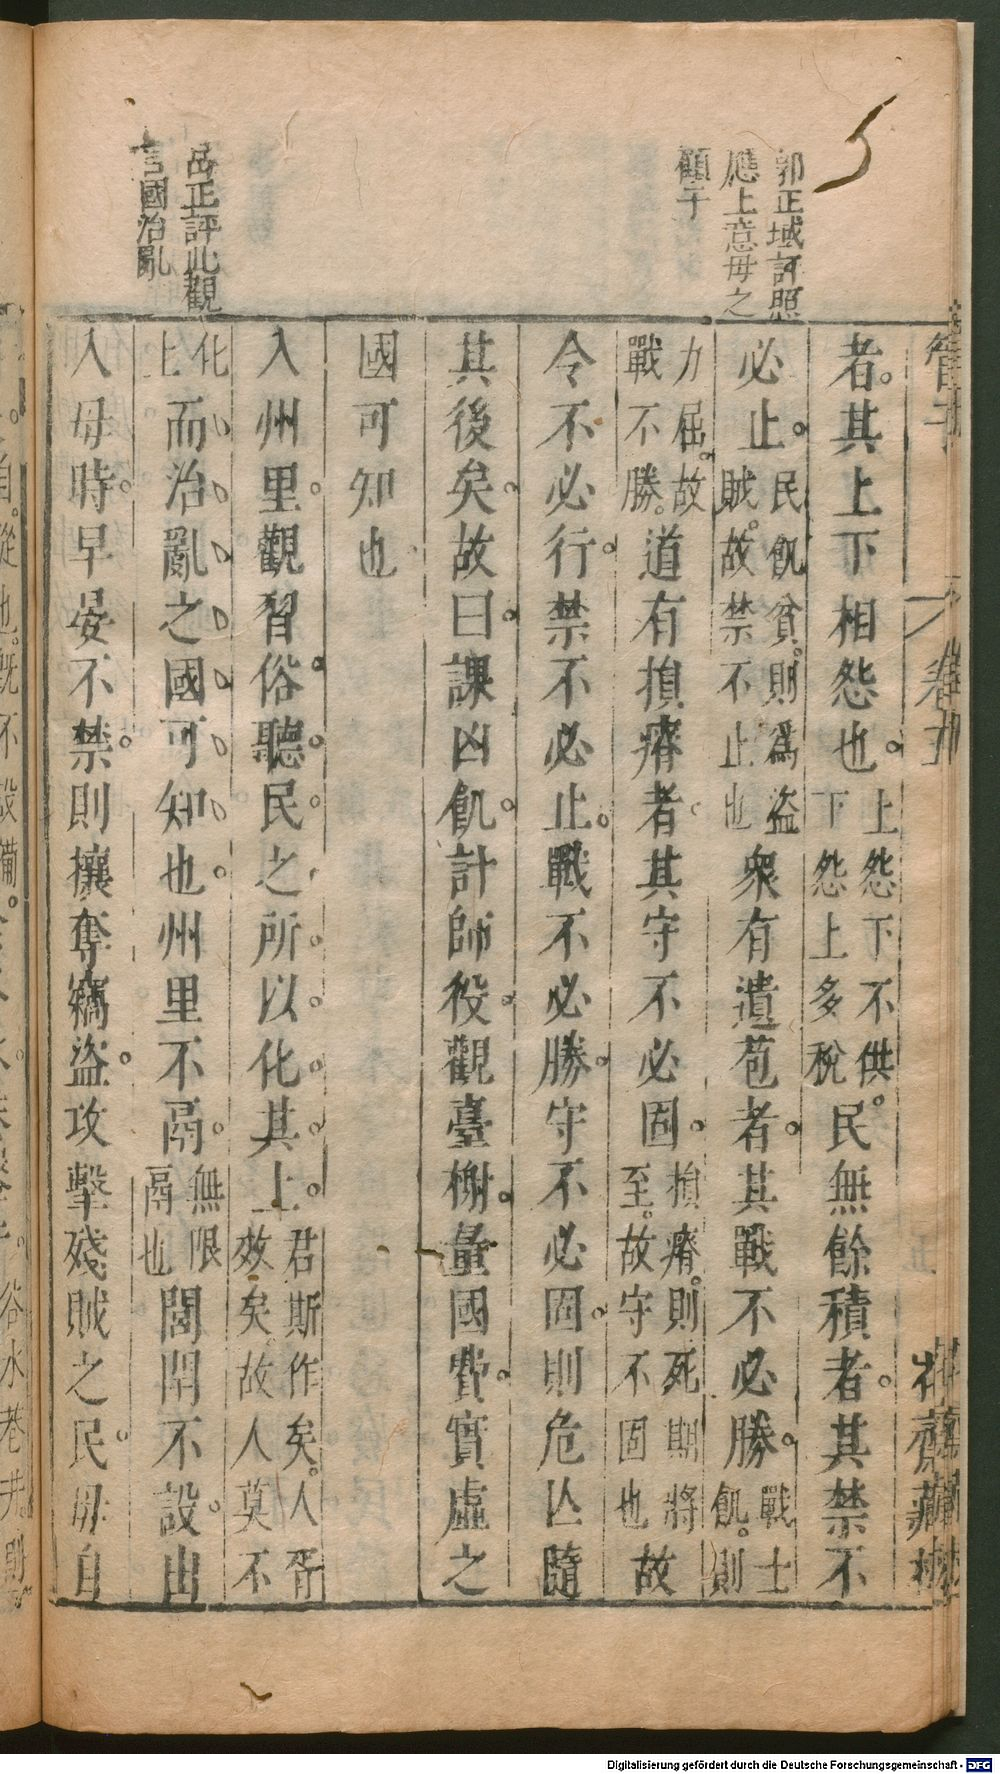 郭正域評照
應上意毋之
顧于
呂正評此觀
言國治亂
管子 卷五 花齋藏板
者其上下相怨也上怨下不供下怨上多稅民無餘積者其禁不
必止民飢貧則爲盜賊故禁不止也衆有遺苞者其戰不必勝戰士飢則
力屈故戰不勝道有損瘠者其守不必固損瘠則死期將至故守不固也故
令不必行禁不必止戰不必勝守不必固則危亾隨
其後矣故曰課凶飢計師役觀臺榭量國費實虛之
國可知也
入州里觀習俗聽民之所以化其上君斯作矣人胥效矣故人莫不
化上而治亂之國可知也州里不鬲無限鬲也閭閈不設出
入毋時早晏不禁則攘奪竊盜攻擊殘賊之民毋自
Digitalisierung gefördert durch die Deutsche Forschungsgemeinschaft - DFG